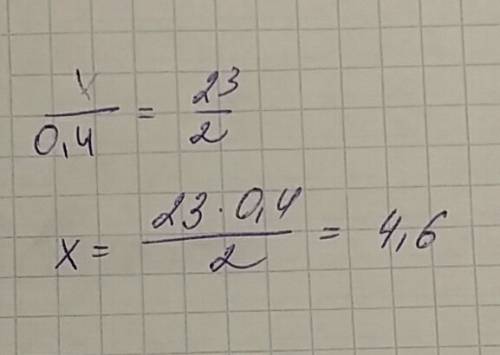 x/0,4 = 23/2
x = 23·0,4/2 = 4,6